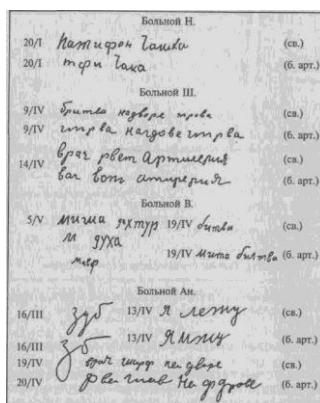 Больной Н.
20/I патифон чашки (св.)
20/I тфи чака (б. арт.)
Больной Ш.
9/IV бритва надворе трова (св.)
9/IV гитрва нагдове гитрва (б. арт.)
14/IV врач рвет артилерия (св.)
ваг вот атирерия (б. арт.)
Больной В.
5/V миша яхтур 19/IV битва (св.)
м духа
19/IV мито битва (б. арт.)
Больной Ан.
16/III зуб 13/IV я лежу (св.)
16/III зб 13/IV я мжу (б. арт.)
19/IV врач шарф на дворе (св.)
20/IV (б. арт.)